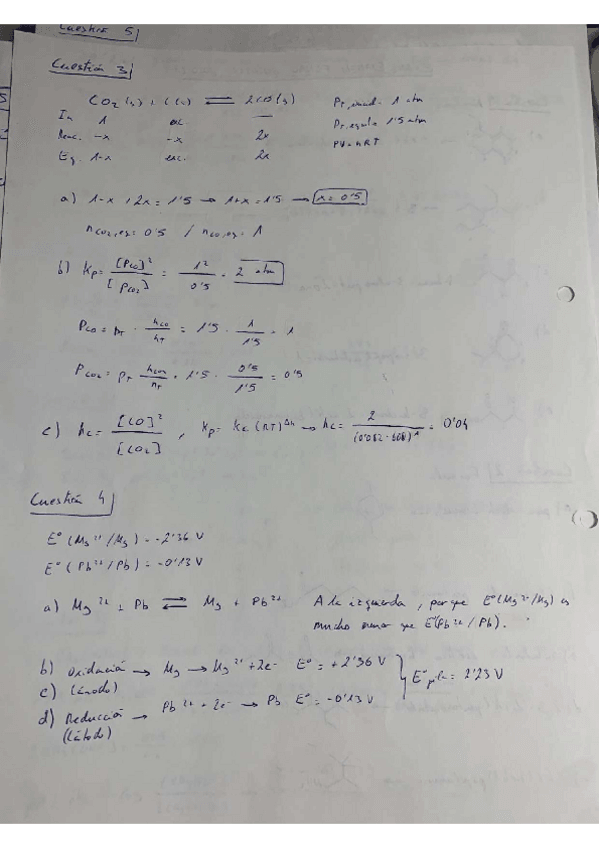 Cuestión 5
Cuestión 3
CO₂(g) + C(s) ⇌ 2CO(g)
In 1 exc. —
Reac. -x -x 2x
Eq. 1-x exc. 2x
1 atm
1'5 atm
PV=nRT
a) 1-x+2x=1'5 → 1+x=1'5 → x=0'5
nCO₂,eq= 0'5 / nCO,eq= 1
b) Kp= [PCO]² / [PCO₂] = 1² / 0'5 = 2 atm
PCO = PT · nCO / nT = 1'5 · 1 / 1'5 = 1
PCO₂ = PT nCO₂ / nT = 1'5 · 0'5 / 1'5 = 0'5
c) Kc= [CO]² / [CO₂] , Kp= Kc (RT)^Δn → Kc= 2 / = 0'04
Cuestión 4
E° (Mg²⁺/Mg) = -2'36 V
E° (Pb²⁺/Pb) = -0'13 V
a) Mg²⁺ + Pb ⇌ Mg + Pb²⁺
A la izquierda, porque E°(Mg²⁺/Mg) es
mucho menor que E°(Pb²⁺/Pb).
b) Oxidación → Mg → Mg²⁺ + 2e⁻ E° = +2'36 V
c) (ánodo)
E°pila = 2'23 V
d) Reducción → Pb²⁺ + 2e⁻ → Pb E° = -0'13 V
(cátodo)